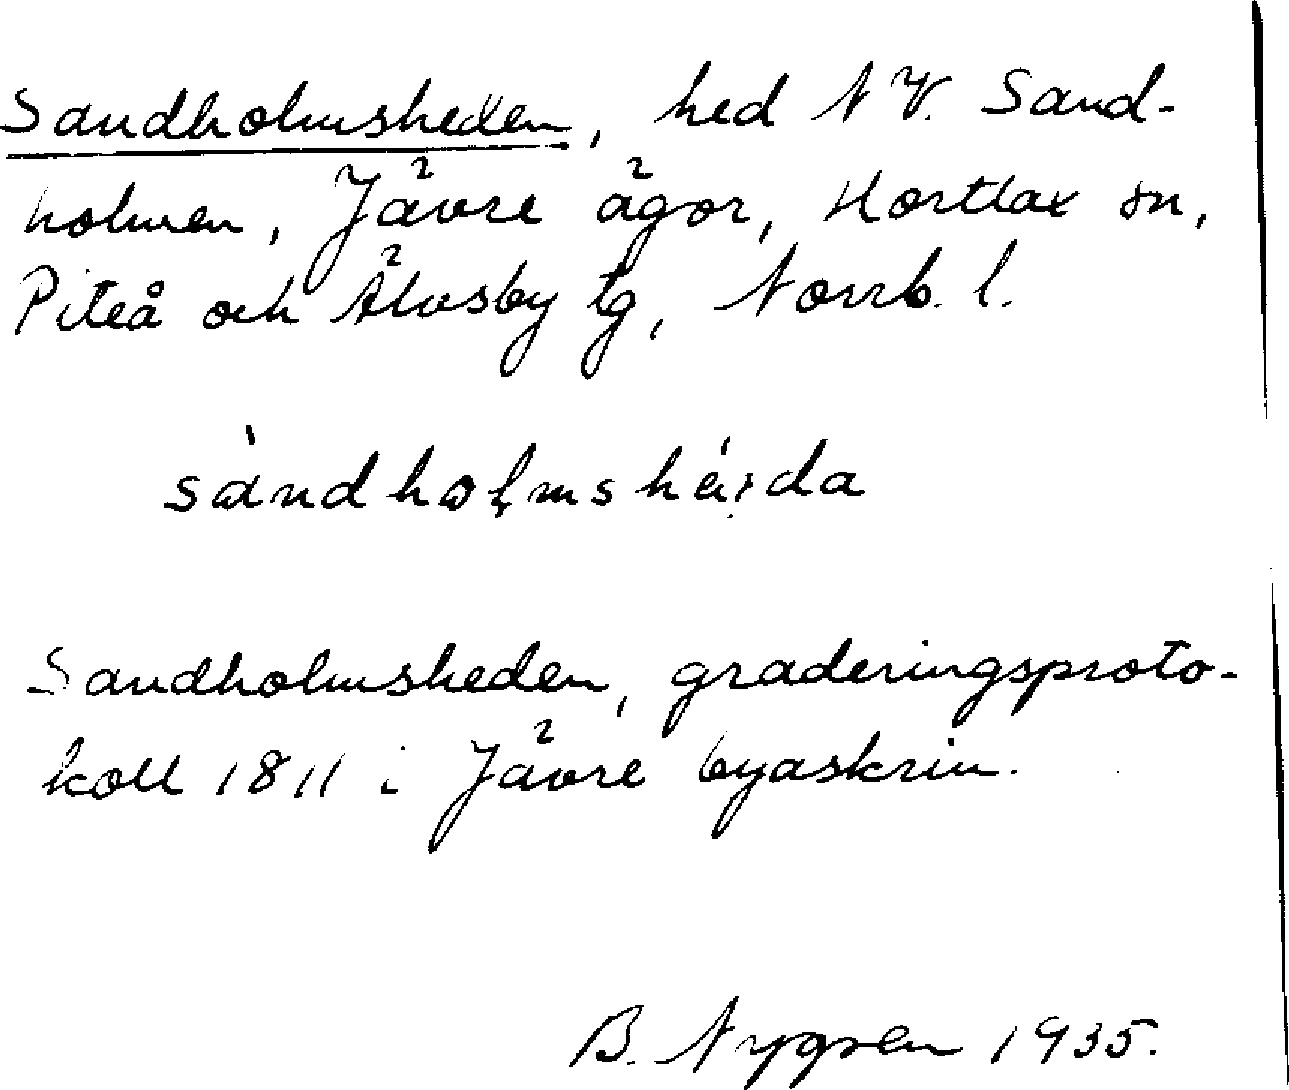 Sandholmsheden, hed N V. Sand-
holmen, Jävre ägor, Hortlax sn,
Piteå och Älvsby tg, Norrb. l.
sàndholmshé:da
Sandholmsheden, graderingsproto-
koll 1811 i Jävre byaskrin.
B. Nygren 1935.